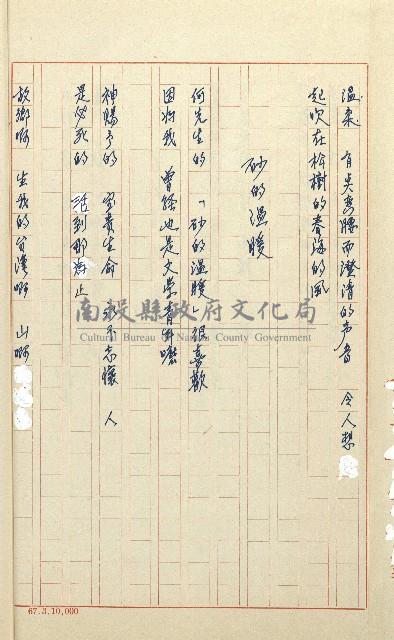 溫柔 有笑 彎腰而澄清的声音 令人想
起吹在 樹的春海的風
砂的溫暖
何先生的「砂的溫暖」很喜歡
因為我 曾經也是文学青年嘛
神賜予的 寶貴生命 永不忘懷 人
是必死的 活到那為止
故鄉啊 生我的 啊 山啊
南投縣政府文化局
Cultural Bureau of Nantou County Government
67.3.10,000